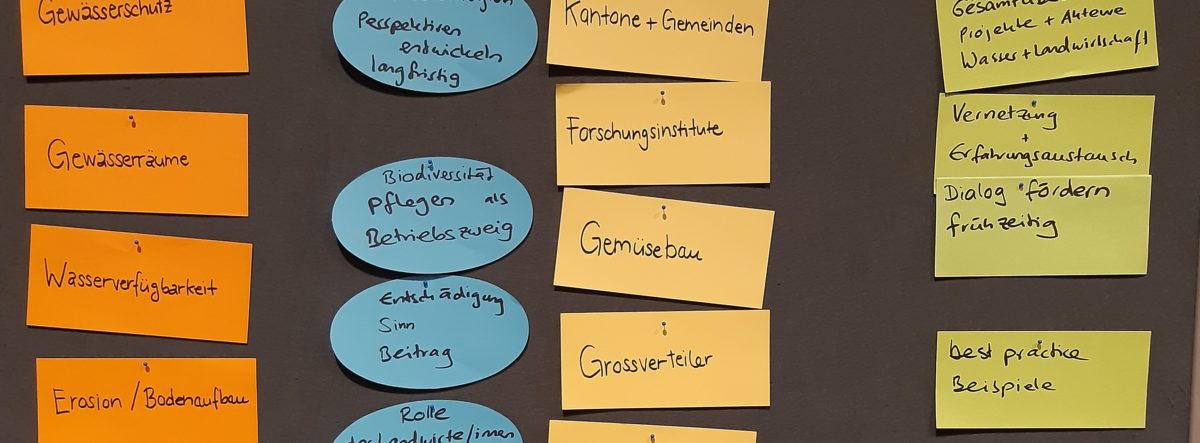 Gewässerschutz
Gewässerräume
Wasserverfügbarkeit
Erosion / Bodenaufbau
Perspektiven
entwickeln
langfristig
Biodiversität
pflegen als
Betriebszweig
Entschädigung
Sinn
Beitrag
Rolle
Landwirte/innen
Kantone + Gemeinden
Forschungsinstitute
Gemüsebau
Grossverteiler
Projekte + Akteure
Wasser + Landwirtschaft
Vernetzung
+
Erfahrungsaustausch
Dialog fördern
frühzeitig
best practice
Beispiele